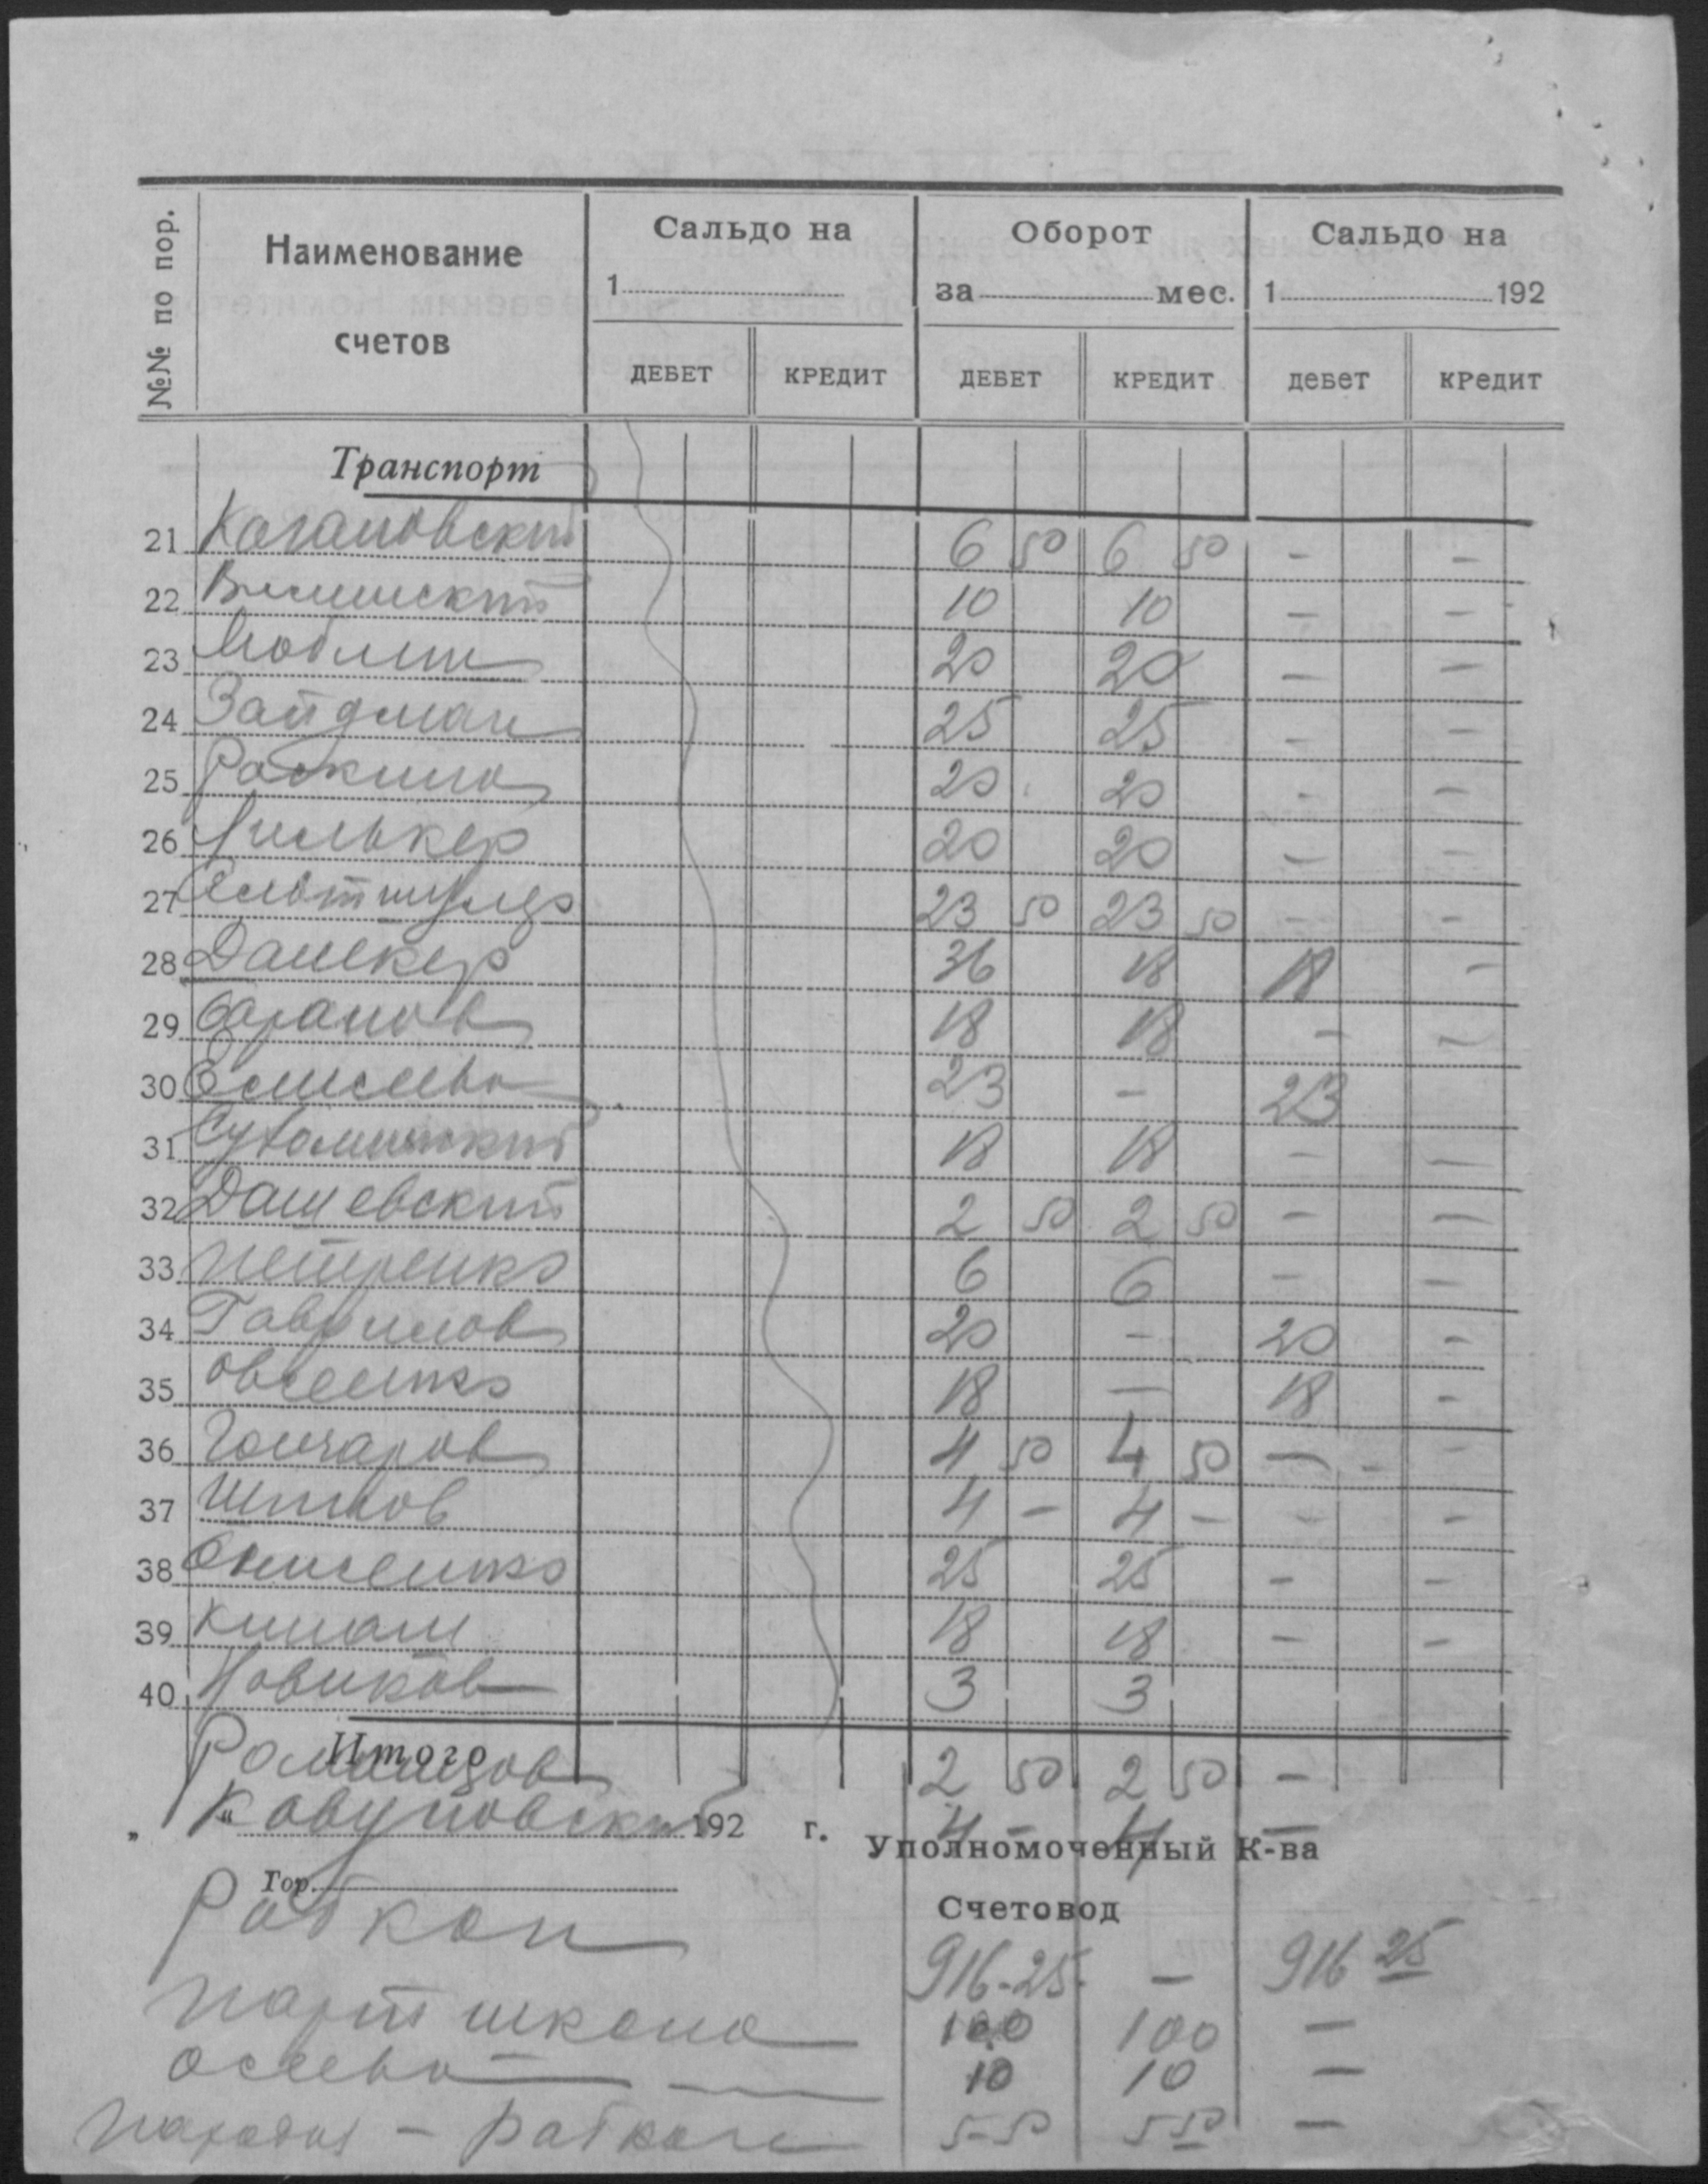 №№ по пор. Наименование счетов Сальдо на Оборот Сальдо на
1 за мес. 1 192
ДЕБЕТ КРЕДИТ ДЕБЕТ КРЕДИТ дебет кредит
Транспорт
21 Кагановский 6 50 6 50 - -
22 10 10 - -
23 20 20 - -
24 Зайдман 25 25 - -
25 Раскина 20 20 - -
26 20 20 - -
27 23 50 23 50 - -
28 36 18 18 -
29 Баранов 18 18 - -
30 23 - 23
31 18 18 - -
32 Дашевский 2 50 2 50 - -
33 Петренко 6 6 - -
34 Гаврилов 20 - 20 -
35 Овсеенко 18 - 18 -
36 Гончаров 4 50 4 50 - -
37 4 - 4 - - -
38 Онищенко 25 25 - -
39 18 18 - -
40 Новиков 3 3
Итого
2 50 2 50 -
„ “ 192 г. 4 - 4 -
Уполномоченный К-ва
Гор.
Счетовод
Рабкоп 916-25 - 916 25
Партшкола 100 100 -
10 10 -
- Рабкоп 5-50 5 50 -